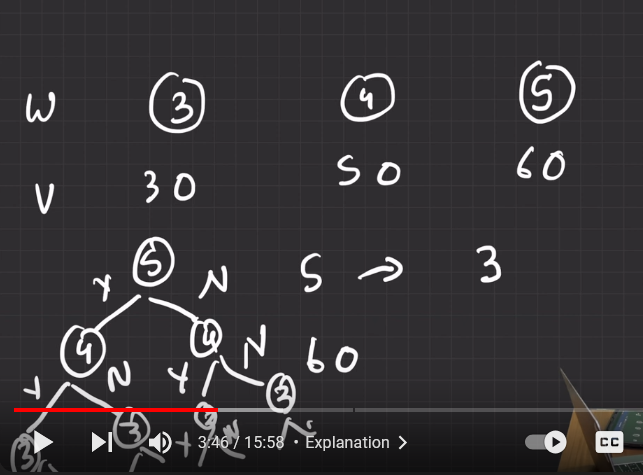 W 3 4 5
V 30 50 60
5 5 → 3
Y N
4 4 60
Y N Y N
3 3 3 3
Y N
3:46 / 15:58 • Explanation >
CC